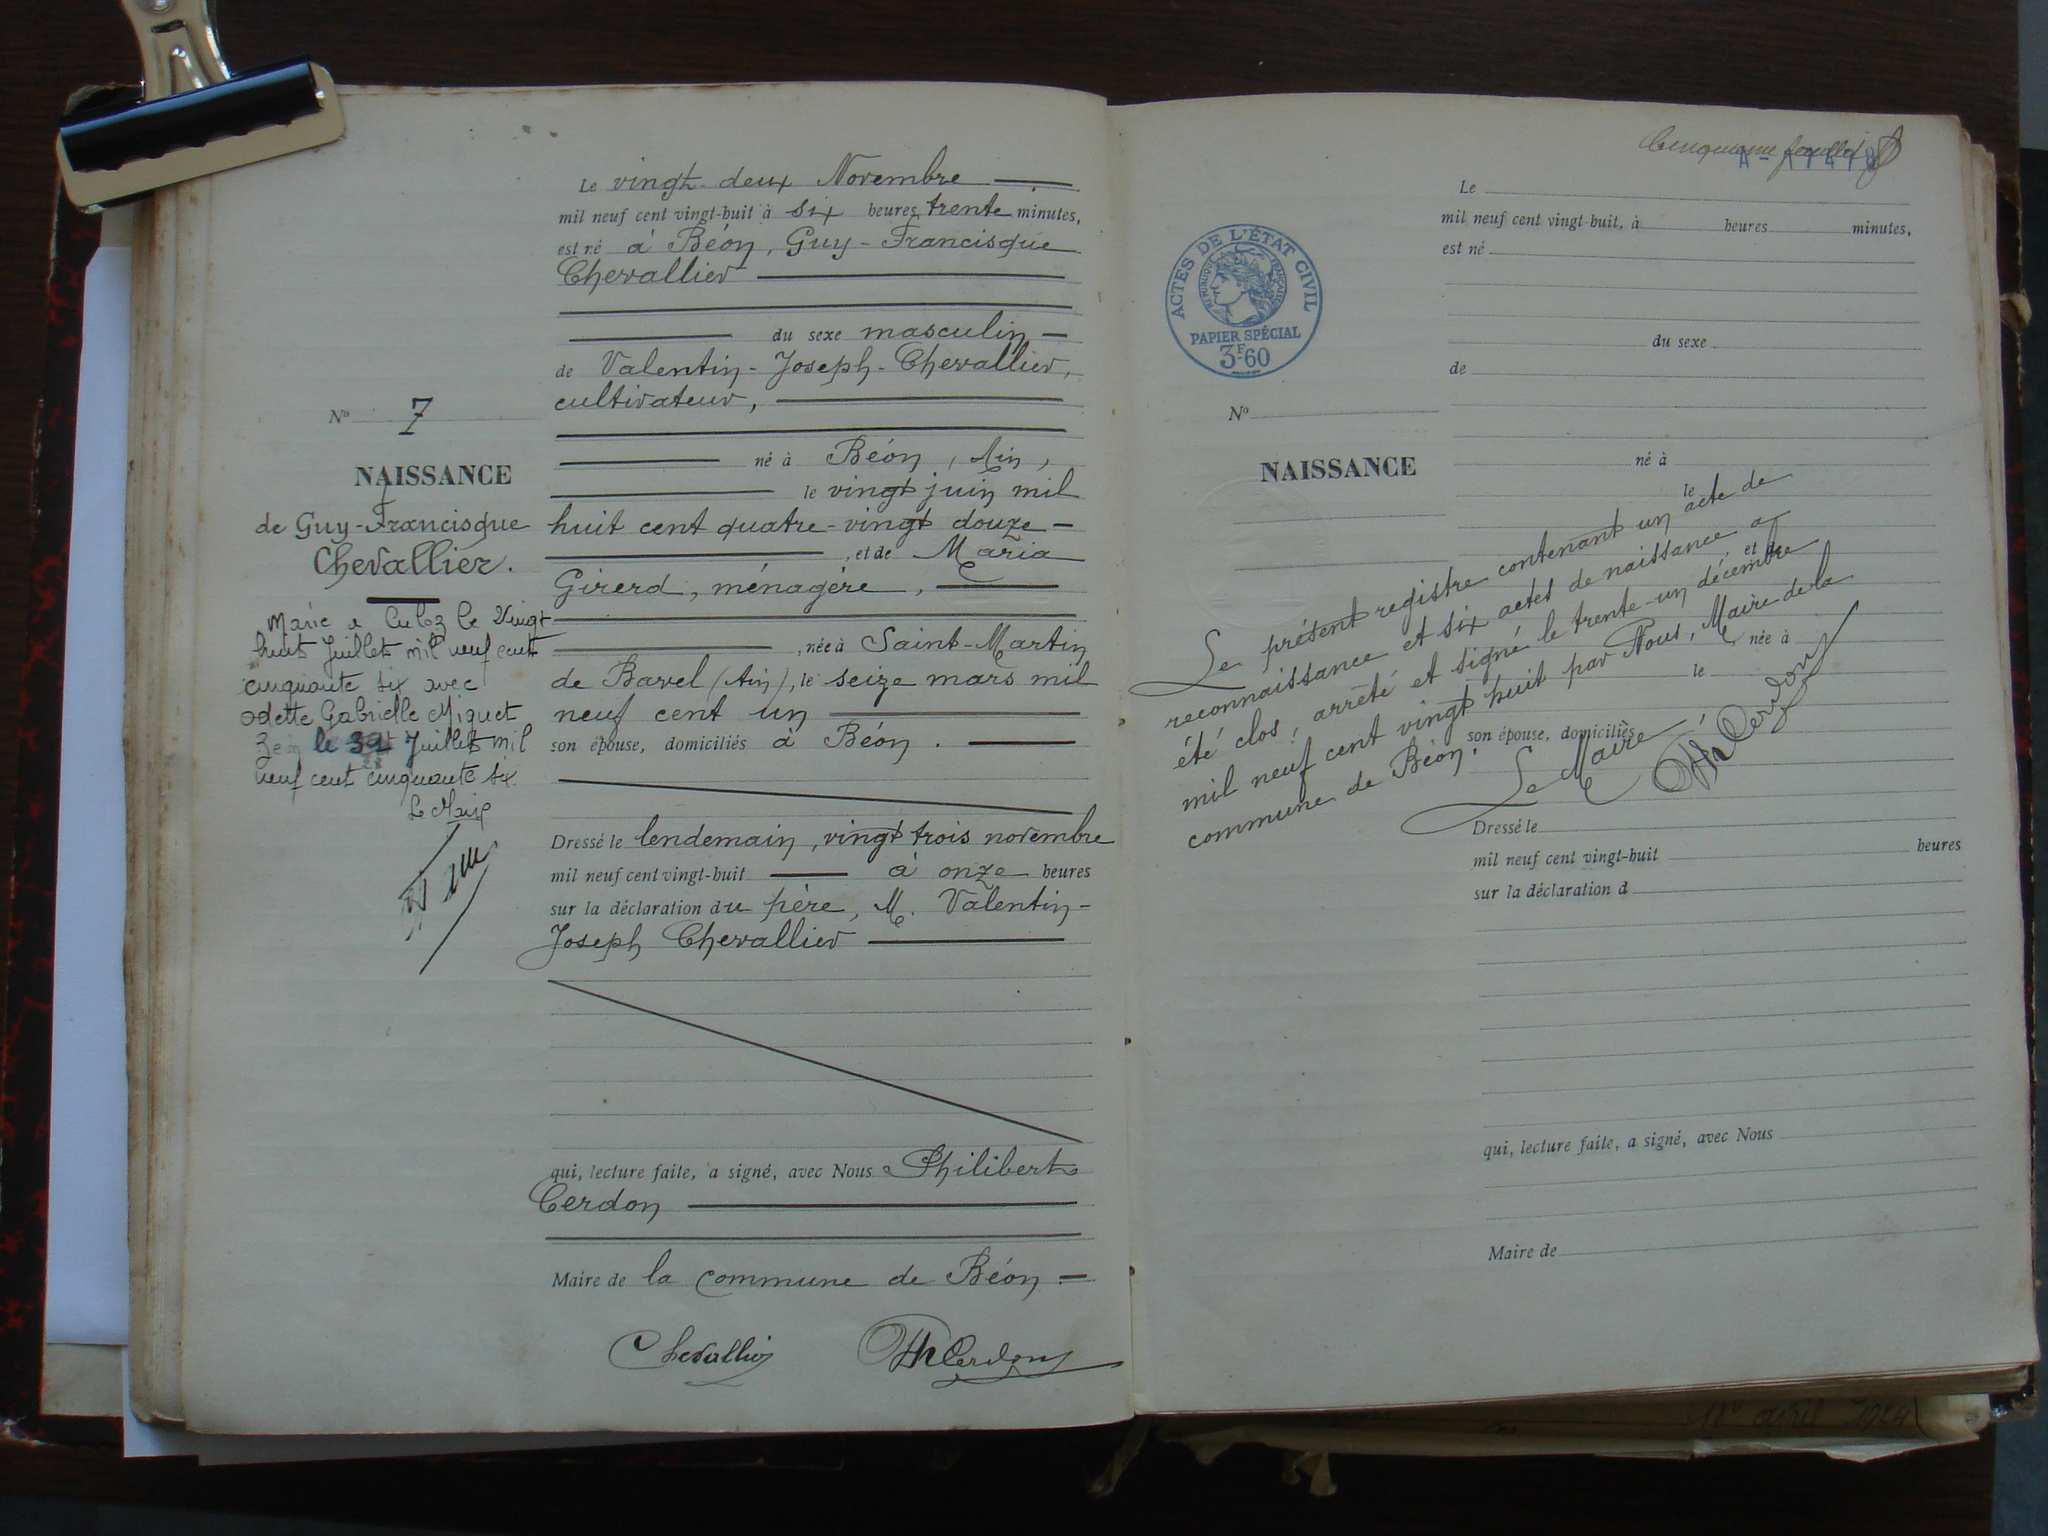 Le vingt-deux Novembre
mil neuf cent vingt-huit à six heures trente minutes,
est né à Béon, Guy-Francisque
Chevallier
du sexe masculin
de Valentin-Joseph-Chevallier,
cultivateur,
né à Béon, Ain,
le vingt juin mil
huit cent quatre-vingt douze
, et de Maria
Girerd, ménagère,
, née à Saint-Martin
de Bavel (Ain), le seize mars mil
neuf cent un
son épouse, domiciliés à Béon.
Dressé le lendemain, vingt trois novembre
mil neuf cent vingt-huit à onze heures
sur la déclaration du père, M. Valentin-
Joseph Chevallier
qui, lecture faite, a signé, avec Nous Philibert
Cerdon
Maire de la commune de Béon
Chevallier PhCerdon
No 7
NAISSANCE
de Guy-Francisque
Chevallier.
Marié a Culoz le Vingt
huit Juillet mil neuf cent
cinquante six avec
Odette Gabrielle Miguet
le 30 Juillet mil
neuf cent cinquante six
Le Maire
Cinquième feuillet
ACTES DE L'ÉTAT CIVIL
RÉPUBLIQUE FRANÇAISE
PAPIER SPÉCIAL
3F60
Le
mil neuf cent vingt-huit, à heures minutes,
est né
du sexe
de
No
NAISSANCE
né à
le
, et de
née à
le
son épouse, domiciliés
Le présent registre contenant un acte de
reconnaissance et six actes de naissance a
été clos, arrêté et signé le trente-un décembre
mil neuf cent vingt huit par Nous, Maire de la
commune de Béon.
Le Maire
PhCerdon
Dressé le
mil neuf cent vingt-huit heures
sur la déclaration d
qui, lecture faite, a signé, avec Nous
Maire de
avril